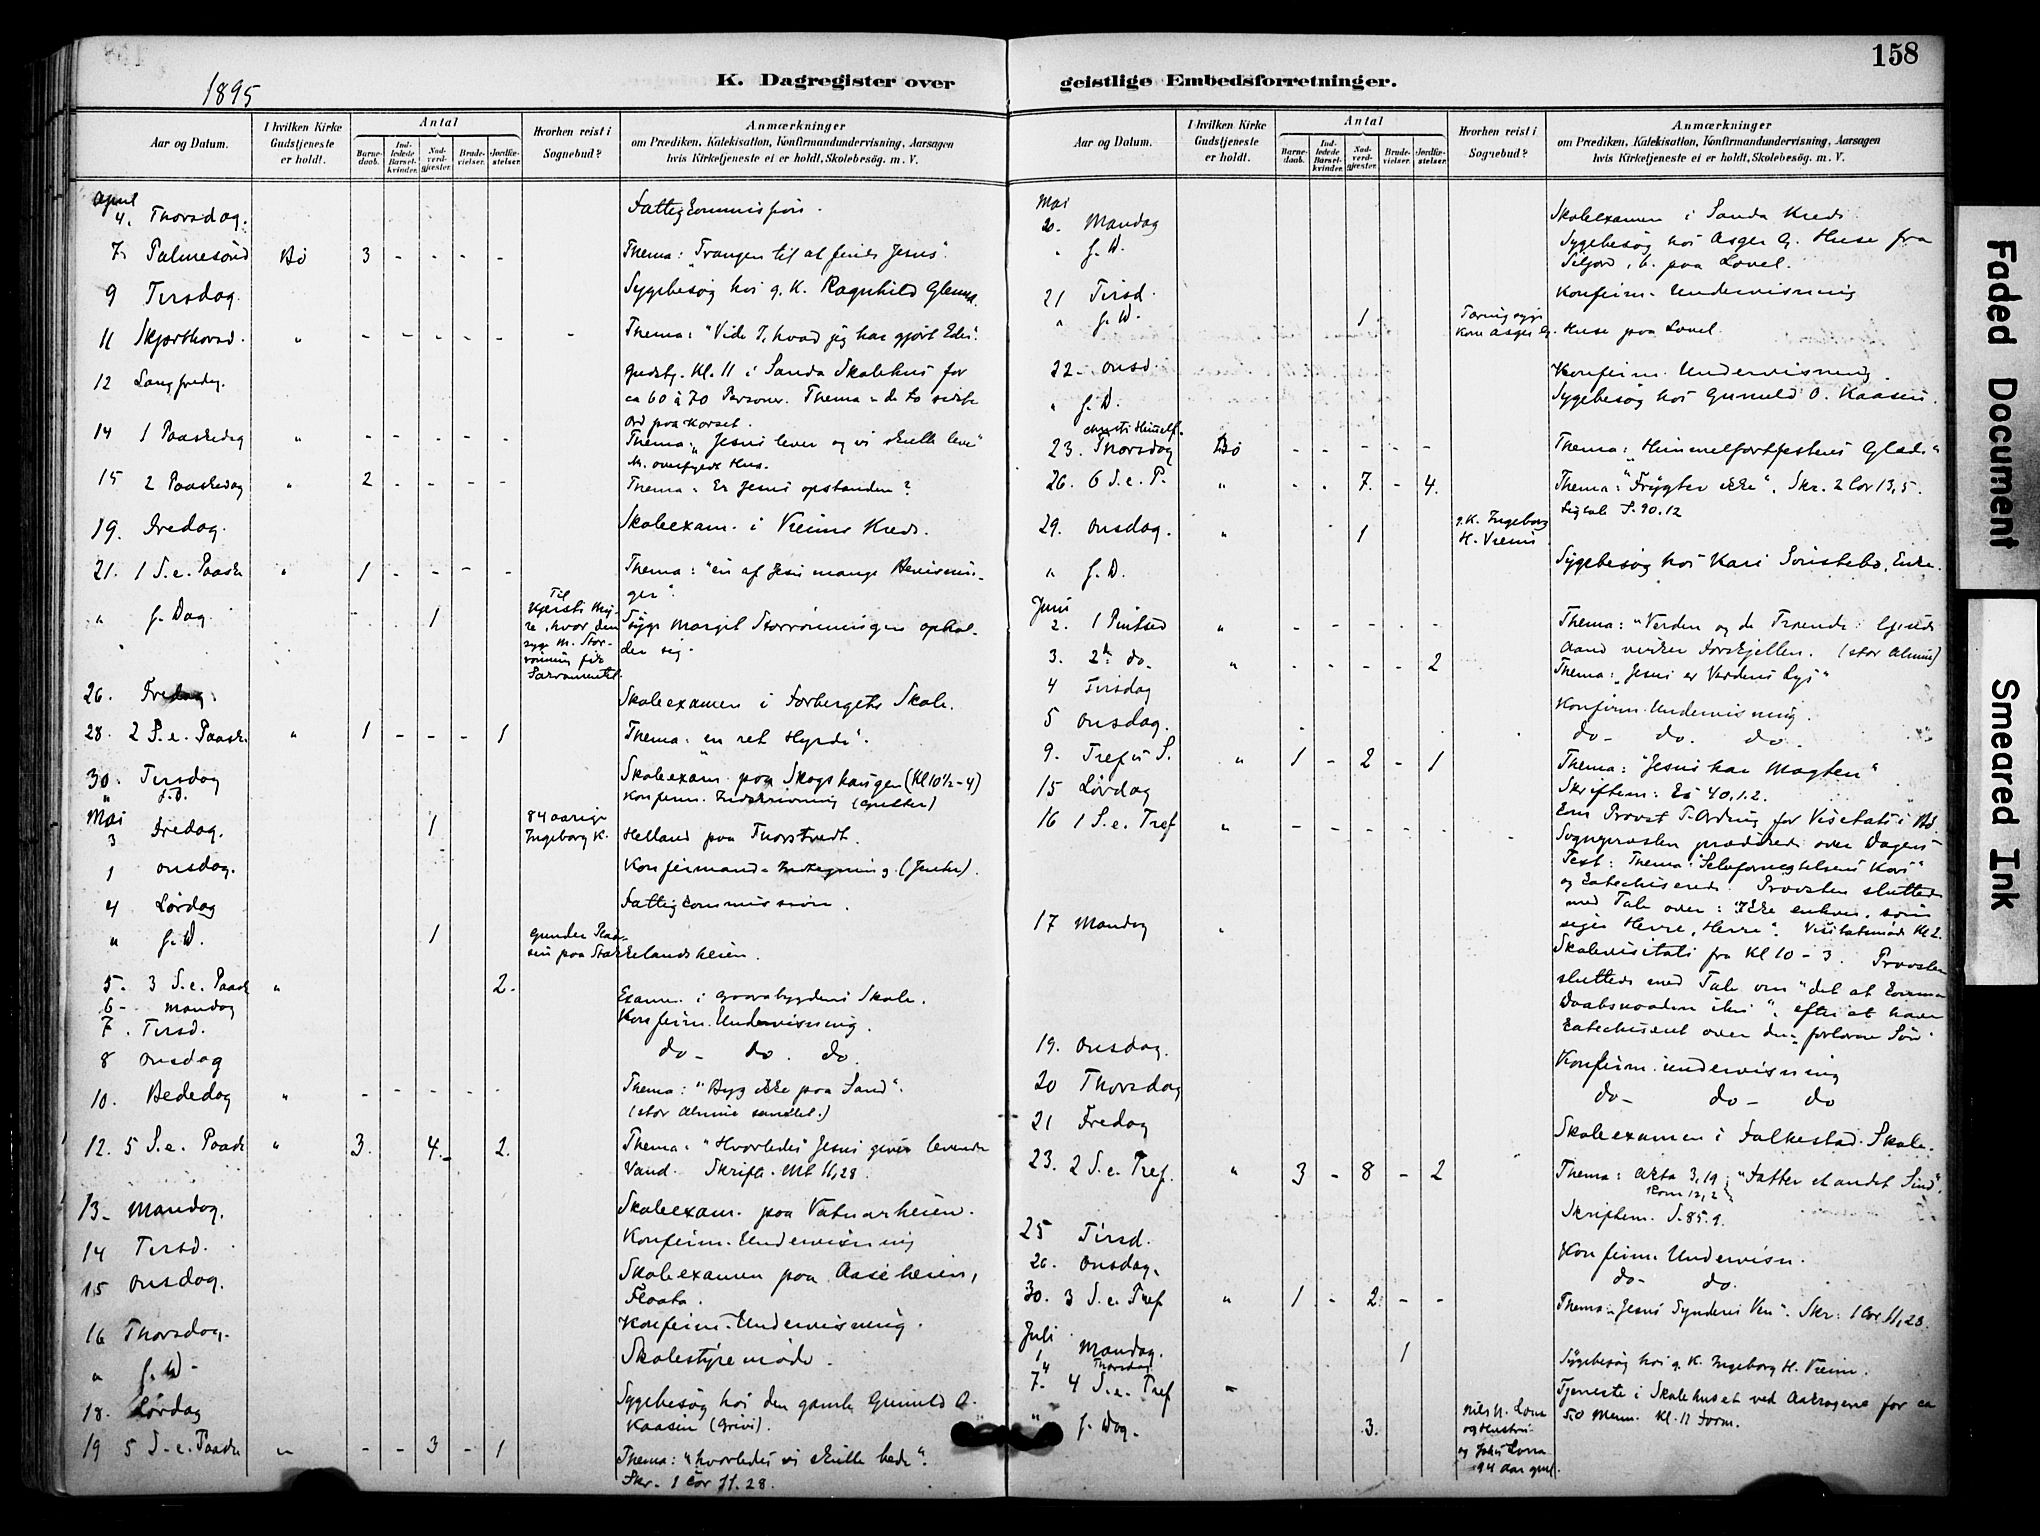 158
1895
K. Dagregister over
geistlige Embedsforretninger.
Aar og Datum.
I hvilken Kirke Gudstjeneste er holdt.
Antal
Barnedaab.
Indledede Barselkvinder.
Nadverdgjæster.
Brudevielser.
Jordfæstelser.
Hvorhen reist i Sognebud?
Anmærkninger
om Prædiken, Katekisation, Konfirmandundervisning, Aarsagen
hvis Kirketjeneste ei er holdt, Skolebesög. m. V.
April
4. Thorsdag. Fattigcommission.
7. Palmesönd Bö 3 - - - - Thema: "Trangen til at finde Jesus".
9 Tirsdag. Sygebesøg hos g. K. Ragnhild
11 Skjærthorsd. " - - - - - - Thema: "Vide I, hvad jeg har gjort Eder".
12 Langfredag. Gudstj. Kl. 11 i Sanda Skolehus for
ca 60 à 70 Personer. Thema - de to sidste
Ord paa Korset.
14 1 Paaskedag " - - - - - Thema: "Jesus lever og vi skulle leve"
M. overfyldt Hus.
15 2 Paaskedag " 2 - - - - Thema: Er Jesus opstanden?
19. Fredag. Skoleexam. i Kreds.
21. 1 S. e. Paaske " 1 - - - - Thema: "en af Jesu mange
ger".
" s. Dag 1 Til
hvor den
syge M.
fik
Sacramentet.
syge Margit ophol-
der sig.
26. Fredag. Skoleexamen i Forbergets Skole.
28. 2 S. e. Paaske " 1 - - - 1 Thema: en ret Hyrde".
30. Tirsdag Skoleexam. paa Skogshaugen (Kl 10½-4)
" s. D. Konfirm. Indskrivning (Gutter)
Mai
3 Fredag. 1 84 aarige
Ingeborg K. Helland paa Thorstvedt.
1 Onsdag. Konfirmand-Indtegning. (Jenter).
4 Lørdag Fattigcommission.
" s. D. 1 Gunder
sen paa
5. 3 S. e. Paaske " 2.
6. Mandag Examen i Skole.
7. Tirsd. Konfirm. Undervisning.
8 Onsdag do - do. do.
10. Bededag " - - - - - Thema: "Byg ikke paa Sand".
(stor Almue samlet.)
12. 5 S. e. Paaske " 3. 4. - 2. Thema: "Hvorledes Jesus giver levende
Vand. Skrift. Mt 11,28.
13. Mandag. Skoleexam. paa
14 Tirsd. Konfirm. Undervisning
15 Onsdag. Skoleexamen paa Aaseheien,
16 Thorsdag. Konfirm. Undervisning.
" s. D. Skolestyremøde.
18. Lørdag Sygebesøg hos den gamle Gunuld O.
Kaasen (Grivi).
19 5 S. e. Paaske " - - 3 - 1 Thema: "hvorledes vi skulle bede".
Skr. 1 Cor 11.28.
Aar og Datum.
I hvilken Kirke Gudstjeneste er holdt.
Antal
Barnedaab.
Indledede Barselkvinder.
Nadverdgjæster.
Brudevielser.
Jordfæstelser.
Hvorhen reist i Sognebud?
Anmærkninger
om Prædiken, Katekisation, Konfirmandundervisning, Aarsagen
hvis Kirketjeneste ei er holdt, Skolebesög. m. V.
Mai
20. Mandag Skoleexamen i Sanda Kreds
" s. D. Sygebesøg hos Asger G. Huse fra
Siljord, b. paa Lovel.
21 Tirsd. Konfirm. Undervisning
" s. D. 1 Tæringssyge
Kone Asger G. Huse paa Lovel.
22 - Onsd. Konfirm. Undervisning
" s. D. Sygebesøg hos Gunuld O. Kaasen.
Christi Himmelf.
23. Thorsdag Bö - - - - - Thema: "Himmelfartsfestens Glæde"
26. 6 S. e. P. " - - 7. - 4. Thema: "Frygter ikke". Skr. 2 Cor 13,5.
S. 90.12
29. Onsdag. " 1 g. K. Ingeborg
H.
" s. D. Sygebesøg hos Kari Sönstebö, Enke.
Juni
2. 1 Pintsed " - - - - - Thema: "Verden og de Troende: Guds
Aand virker Forskjellen. (stor Almue)
3. 2den do. " - - - - 2 Thema: "Jesus er Verdens Lys"
4 Tirsdag Konfirm. Undervisning.
5 Onsdag. do - do. do.
9. Trefs S. " 1 - 2 - 1 Thema: "Jesus har Magten"
15 Lørdag Skriftem: Es 40,1.2.
16 1 S. e. Tref " - - - - - - Provst for Visitats i Bö.
Sognepresten prædikede over Dagens
Text: Thema: "Selvfornegtelsens Kors"
og catechiserede. Provsten sluttede
med Tale over: "Ikke enhver, som
siger Herre, Herre". Visitatsmøde Kl 2.
17 Mandag " Skolevisitats fra Kl 10 - 3. Provsten
sluttede med Tale om "det at komme
Daabsnaaden ihu", efter at have
catechiseret over den forlorne Søn.
19. Onsdag. Konfirm. undervisning
20 Thorsdag do - do - do
21 Fredag Skoleexamen i Folkestad Skole.
23. 2 S. e. Tref. " 3 - 8 - 2 Thema: Akta 3,19; "Fatter et andet Sind".
Rom 12,2
Skriftem. S. 85.9.
25 Tirsd. Konfirm. Undervisn.
26. Onsdag. do - do.
30. 3 S. e. Tref " 1 - 2 - - Thema: Jesus Synderes Ven". Skr: 1 Cor 11,28.
Juli
1 Mandag. 1
4 Thorsdag Sygebesøg hos g. K. Ingeborg H.
7. 4 S. e. Tref - Tjeneste i Skolehuset ved for ca
50 Menn. Kl. 11 Form.
" s. Dag. 3. Nils N.
og Hustru
og
94 Aar gml.
Faded Document
Smeared Ink